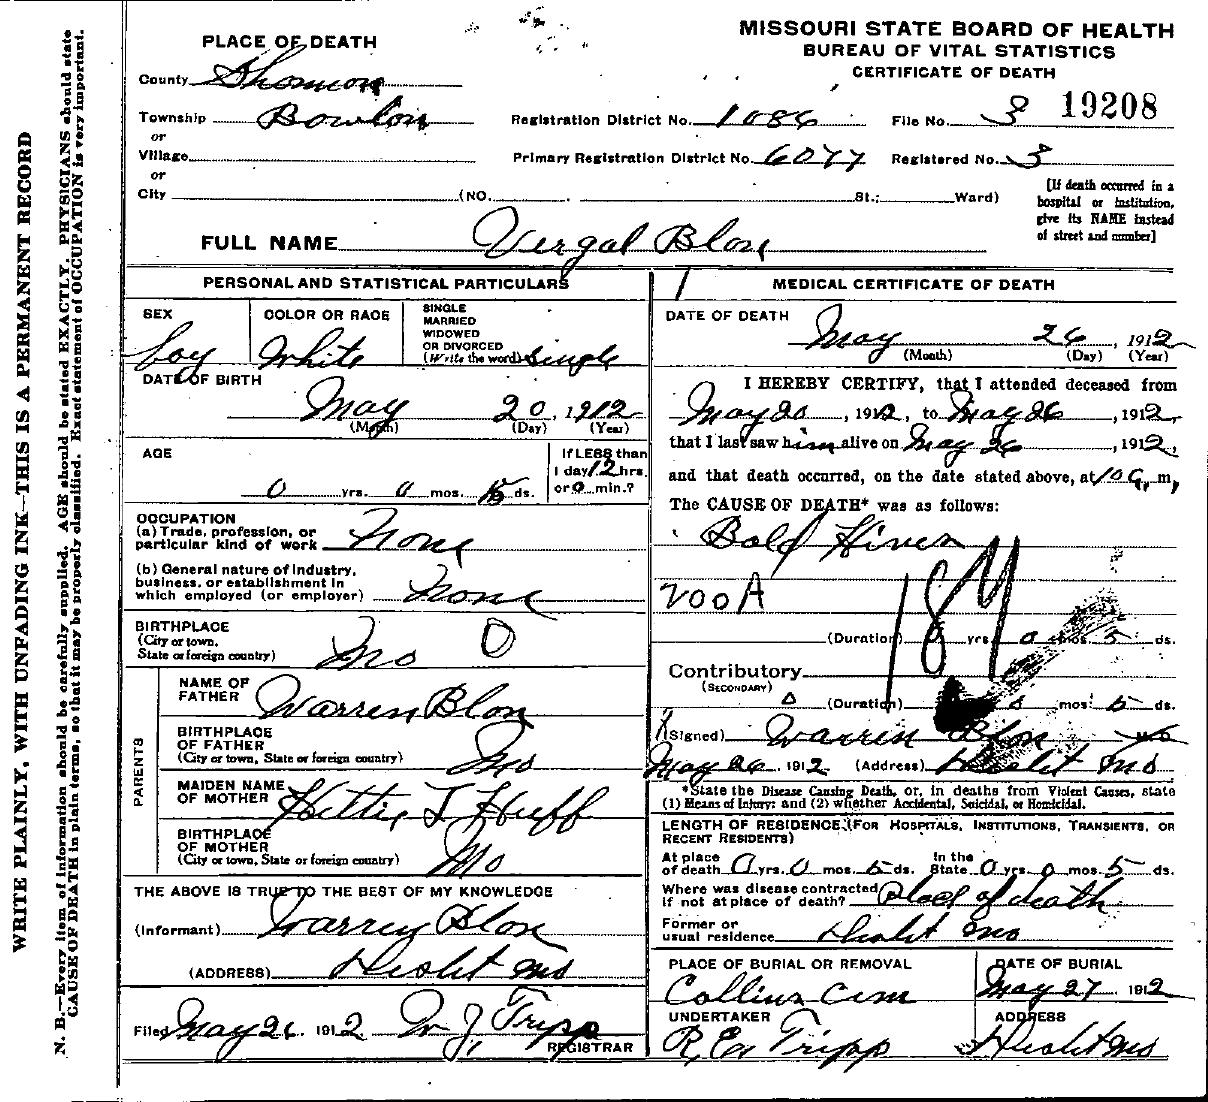 WRITE PLAINLY, WITH UNFADING INK—THIS IS A PERMANENT RECORD
N. B.—Every item of information should be carefully supplied. AGE should be stated EXACTLY. PHYSICIANS should state
CAUSE OF DEATH in plain terms, so that it may be properly classified. Exact statement of OCCUPATION is very important.
MISSOURI STATE BOARD OF HEALTH
BUREAU OF VITAL STATISTICS
CERTIFICATE OF DEATH
PLACE OF DEATH
County Shannon
Township Bowlon
or
Village
or
City (NO. St.; Ward)
Registration District No. 1086 File No. 3 19208
Primary Registration District No. 6077 Registered No. 3
[If death occurred in a
hospital or institution,
give its NAME instead
of street and number]
FULL NAME Vergal Blon
PERSONAL AND STATISTICAL PARTICULARS
SEX boy
COLOR OR RACE White
SINGLE
MARRIED
WIDOWED
OR DIVORCED
(Write the word) Single
DATE OF BIRTH
May 20, 1912
(Month) (Day) (Year)
AGE
0 yrs. 0 mos. 5 ds.
If LESS than
1 day 12 hrs.
or 0 min.?
OCCUPATION
(a) Trade, profession, or
particular kind of work None
(b) General nature of industry,
business, or establishment in
which employed (or employer) None
BIRTHPLACE
(City or town,
State or foreign country) Mo 0
PARENTS
NAME OF
FATHER Warren Blon
BIRTHPLACE
OF FATHER
(City or town, State or foreign country) Mo
MAIDEN NAME
OF MOTHER Hettie L Huff
BIRTHPLACE
OF MOTHER
(City or town, State or foreign country) Mo
THE ABOVE IS TRUE TO THE BEST OF MY KNOWLEDGE
(Informant) Warren Blon
(ADDRESS) Mo
Filed May 26, 1912 W. J. Tripp
REGISTRAR
1 MEDICAL CERTIFICATE OF DEATH
DATE OF DEATH
May 26, 1912
(Month) (Day) (Year)
I HEREBY CERTIFY, that I attended deceased from
May 20, 1912, to May 26, 1912,
that I last saw him alive on May 26, 1912,
and that death occurred, on the date stated above, at 10 a, m,
The CAUSE OF DEATH* was as follows:
Bold Hives
200A 189
(Duration) 0 yrs. 0 mos. 5 ds.
Contributory
(SECONDARY)
0 (Duration) mos. 5 ds.
(Signed) Warren Blon M.D
May 26 1912 (Address) Mo
*State the Disease Causing Death, or, in deaths from Violent Causes, state
(1) Means of Injury; and (2) whether Accidental, Suicidal, or Homicidal.
LENGTH OF RESIDENCE (FOR HOSPITALS, INSTITUTIONS, TRANSIENTS, OR
RECENT RESIDENTS)
At place
of death 0 yrs. 0 mos. 5 ds. In the
State 0 yrs. 0 mos. 5 ds.
Where was disease contracted
if not at place of death? place of death
Former or
usual residence Mo
PLACE OF BURIAL OR REMOVAL
Collins Cem
DATE OF BURIAL
May 27, 1912
UNDERTAKER
Tripp
ADDRESS
Mo